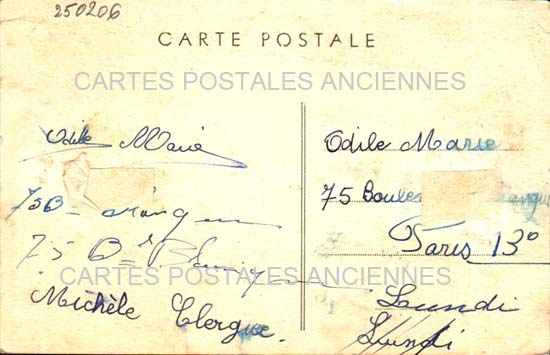 250206
CARTE POSTALE
CARTES POSTALES ANCIENNES
Odile Marie
75 B
75 Bd
Michèle Clergue.
Odile Marie
75 Boule
Paris 13°
CARTES POSTALES ANCIENNES
Lundi
Lundi